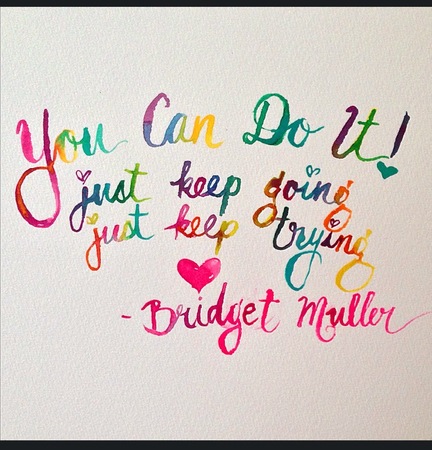 You Can Do It!
just keep going
just keep trying
- Bridget Muller